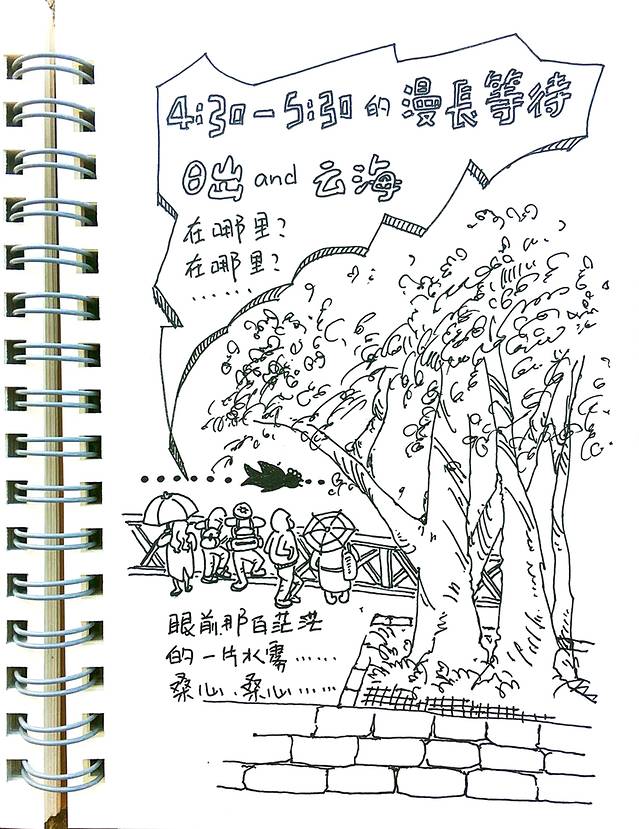 4:30-5:30的漫長等待
日出 and 云海
在哪里?
在哪里?
......
眼前那白茫茫
的一片水雾......
桑心、桑心......